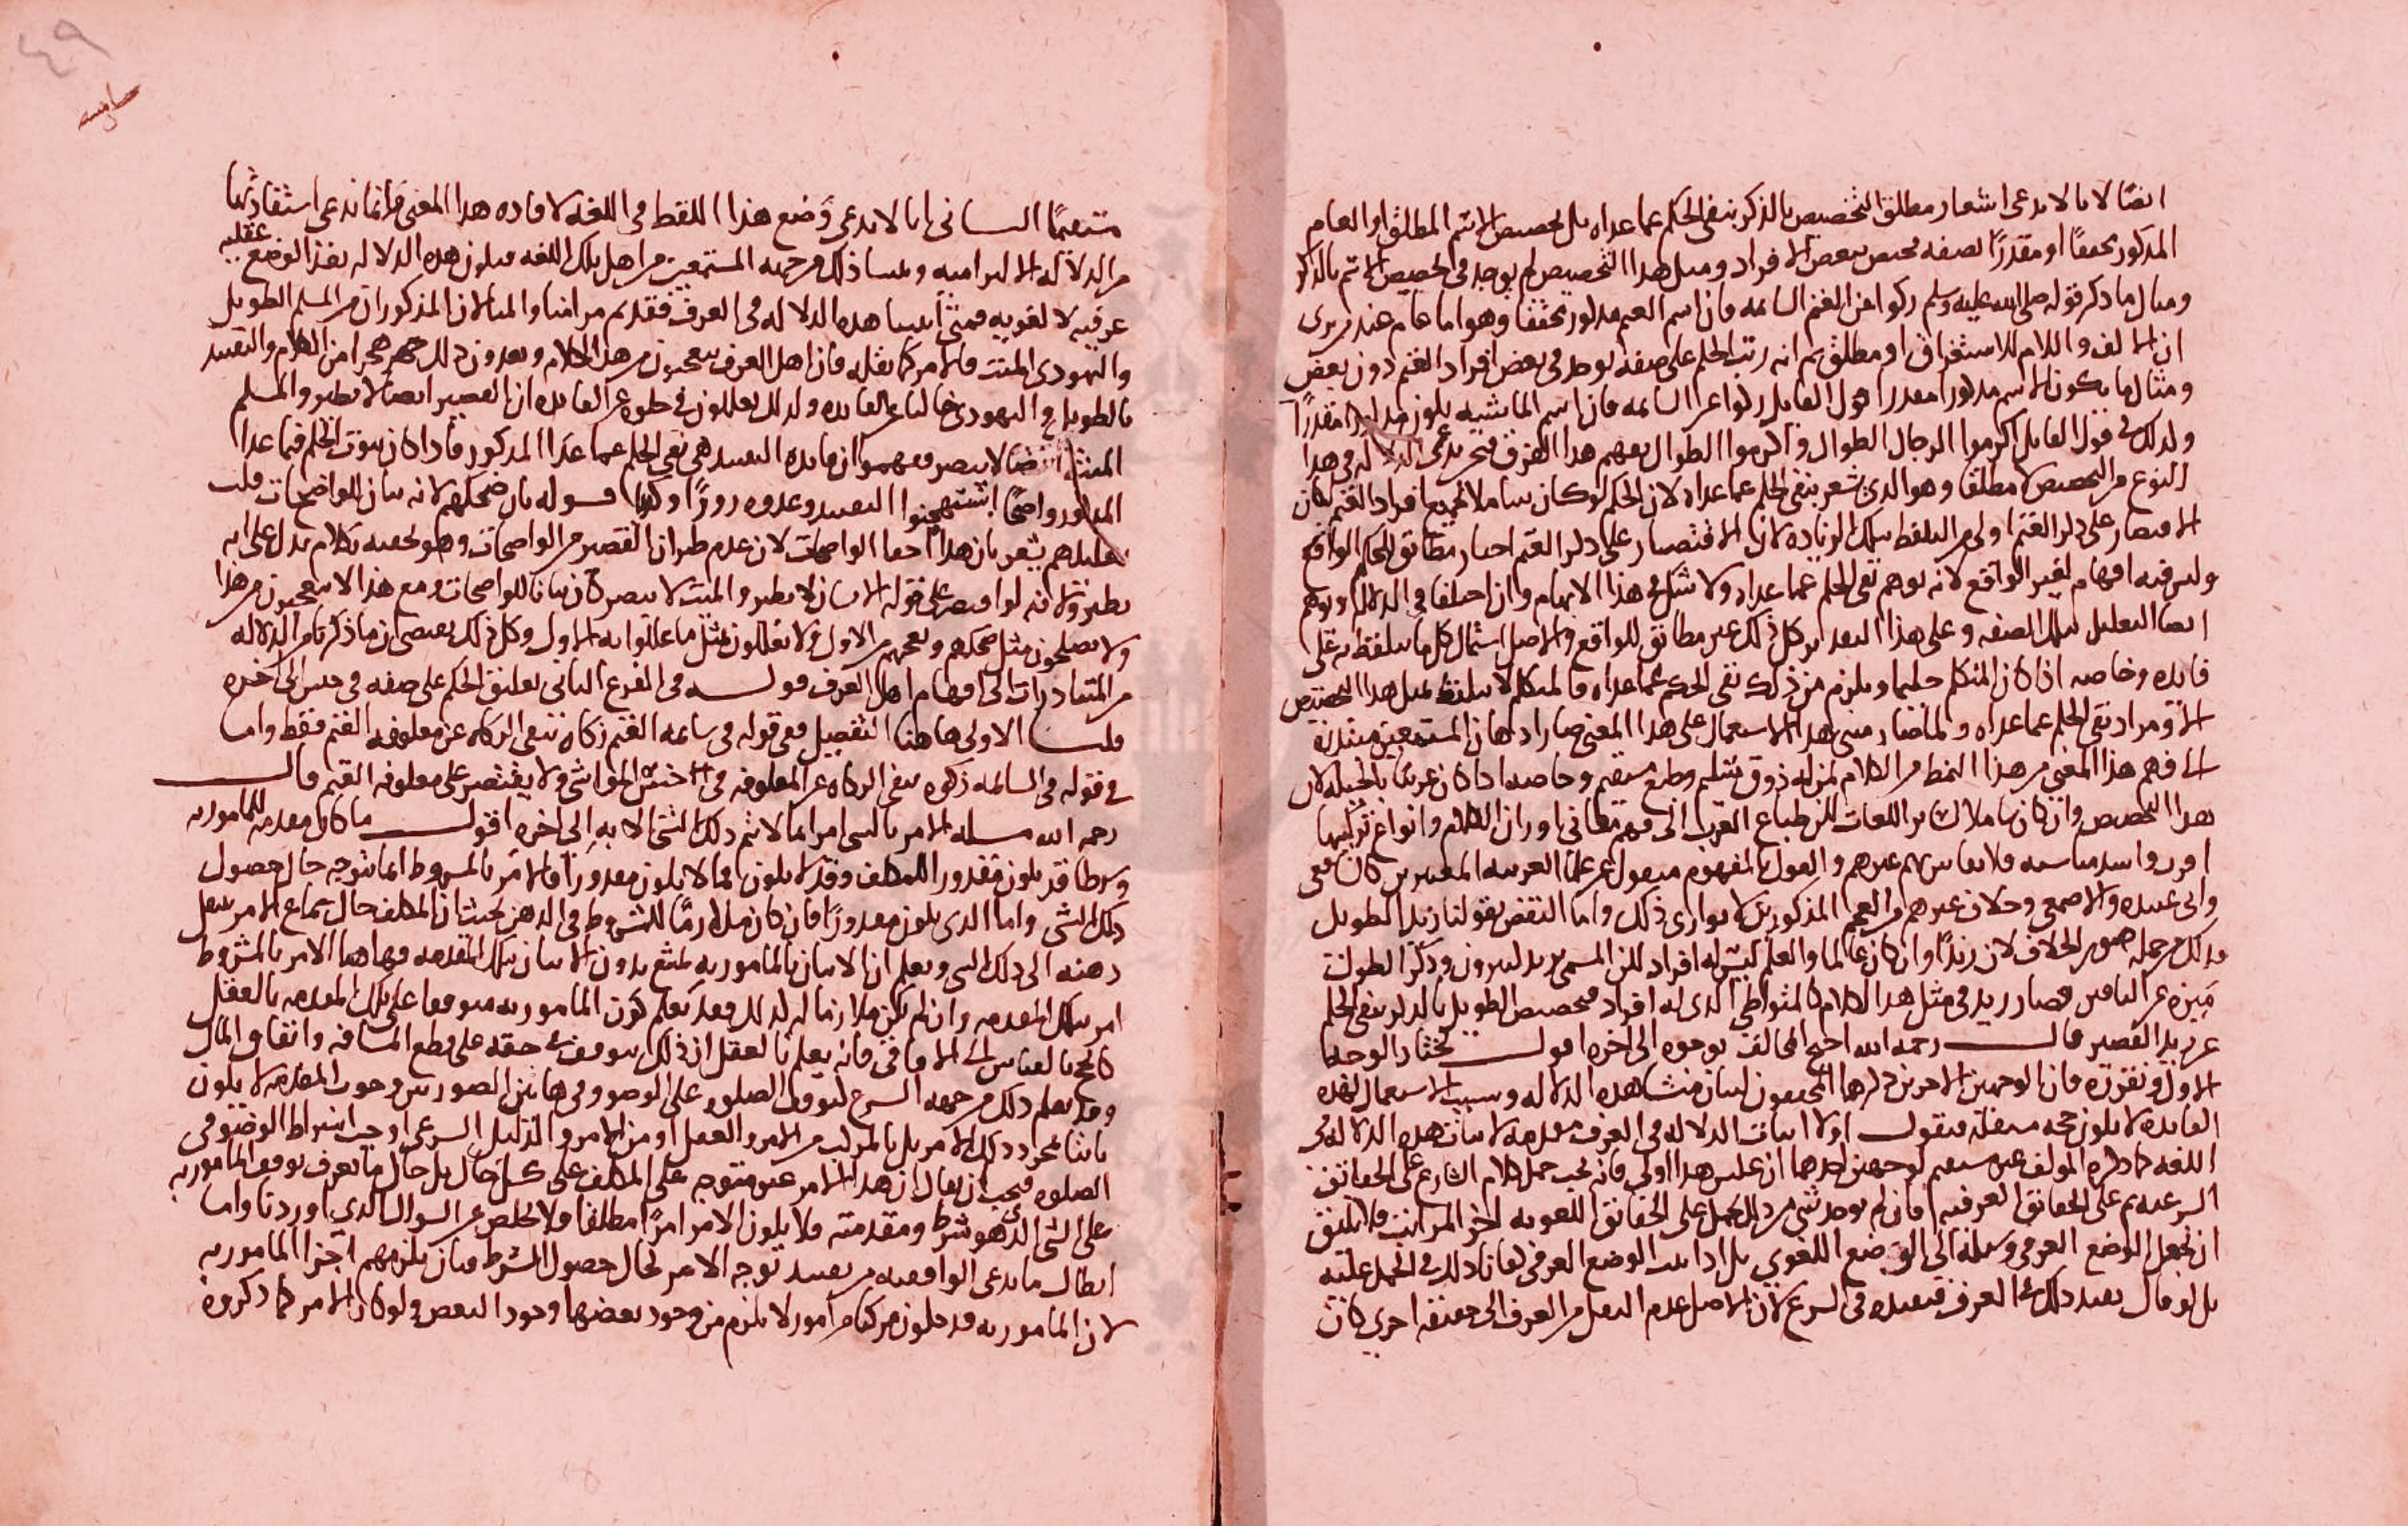 ايضًا لانا لا ندعى اشعار مطلق التخصيص بالذكر بنفى الحكم عما عداه بل تخصيص الاسم المطلق او العام
المذكور تحقيقًا او مقدرًا لصفه تختص ببعض الافراد ومثل هذا التخصيص لم يوجد فى تخصيص الاسم بالذكر
ومثال ما ذكر قوله صلى الله عليه وسلم زكوا عن الغنم السائمه فان اسم الغنم مذكور تحقيقا وهو اما عام عند من يرى
ان الالف واللام للاستغراق او مطلق ثم انه رتب الحكم على صفه توجد فى بعض افراد الغنم دون بعض
ومثال ما يكون الاسم مذكورا مقدرا قول القايل زكوا عن السائمه فان اسم الماشيه يكون مذكورا مقدرًا
ولذلك فى قول القايل اكرموا الرجال الطوال واكرموا الطوال يفهم هذا الفرق فنحن ندعى الدلاله فى هذا
النوع من التخصيص لا مطلقا وهو الذى يشعر بنفى الحكم عما عداه لان الحكم لو كان شاملا لجميع افراد الغنم لكان
الاقتصار على ذكر الغنم اولى من التلفظ بتلك الزياده لان الاقتصار على ذكر الغنم اخبار مطابق للحكم الواقع
وليس فيه افهام لغير الواقع لانه يوهم نفى الحكم عما عداه ولا شك فى هذا الايهام وان اختلفا فى الدلاله ويوهم
ايضا التعليل بتلك الصفه وعلى هذا التقدير كل ذلك غير مطابق للواقع والاصل اشتمال كل ما يتلفظ به على
فايده وخاصه اذا كان المتكلم حكيما ويلزم من ذلك نفى الحكم عما عداه فالمتكلم لا يتلفظ بمثل هذا التخصيص
الا ومراد نفى الحكم عما عداه
الى فهم هذا المعنى من هذا النمط من الكلام لمن له ذوق سليم وطبع مستقيم وخاصه اذا كان عربيًا بالجبله لان
هذا التخصيص وان كان شاملا لساير اللغات لكن طباع العرب الى فهم معانى اوزان الكلام وانواع تركيبها
اقرب واسد مناسبه فلا يقاس بهم غيرهم والقول بالمفهوم منقول عن علما العربيه المعتبرين كالشافعى
وابى عبيده والاصمعى وخلاف غيرهم من العجم المذكورين لا يوازى ذلك واما النقض بقولنا زيد الطويل
فذلك من جمله صور الخلاف لان زيدًا وان كان عالما والعلم ليس له افراد لكن المسمى بزيد كثيرون وذكر الطويل
ميزه عن الباقين فصار زيد فى مثل هذا الكلام كالمتواطى الذى له افراد فتخصيص الطويل بالذكر ينفى الحكم
عن زيد القصير قال رحمه الله احتج المخالف بوجوه الى اخره اقول نختار الوجه
الاول ونقرره فان الوجهين الاخرين ذكرهما المحققون لبيان منشا هذه الدلاله وسبب الاستعمال لهذه
الفايده لا يكون حجه مستقله فنقول اولا اثبات الدلاله فى العرف مقدمه لاثبات هذه الدلاله فى
اللغه كما ذكره المولف غير مستقيم لوجهين احدهما ان عكس هذا اولى فانه يجب حمل كلام الشارع على الحقائق
الشرعيه ثم على الحقائق العرفيه فان لم يوجد شى من ذلك يحمل على الحقائق اللغويه اخر المراتب فلا يليق
ان يجعل الوضع العرفى وسيله الى الوضع اللغوى بل اذا ثبت الوضع العرفى كفانا ذلك فى الحمل عليه
بل لو قال يفيد ذلك فى العرف فيفيده فى الشرع لان الاصل عدم النقل من العرف الى حقيقه اخرى كان
٤٩
مستقيمًا الثانى انا لا ندعى وضع هذا اللفظ فى اللغه لافاده هذا المعنى وانما ندعى استفادتها
من الدلاله الالتزاميه ومنشا ذلك من جهه المستمعين من اهل تلك اللغه فتكون هذه الدلاله بهذا الوضع عقليه
عرفيه لا لغويه فمتى اثبتنا هذه الدلاله فى العرف فقد تم مرامنا والمثالان المذكوران من المسلم الطويل
واليهودى الميت فالامر كما نقله فان اهل العرف يتعجبون من هذا الكلام ويعدون ذلك هجرا من الكلام والتقييد
بالطويل واليهودى خاليا عن الفايده ولذلك يعللون فى خلوه عن الفايده ان القصير ايضا لا يطير والمسلم
الميت ايضا لا يبصر ففهموا ان فايده التقييد هى نفى الحكم عما عدا المذكور فاذا كان ثبوت الحكم فيما عدا
المذكور واضحًا استهجنوا التقييد وعدوه زورًا وكذبا قوله بان ضحكهم لانه بيان للواضحات قلت
تعليلهم يشعر بان هذا اخفا الواضحات لان عدم طيران القصير من الواضحات وهو نحققه بكلام يدل على انه
يطير ولانه لو اقتصر على قوله الانسان لا يطير والميت لا يبصر كان بيانا للواضحات ومع هذا لا يتعجبون من هذا
ولا يضحكون مثل ضحكهم وتعجبهم من الاول ولا يعللون مثل ما عللوا به الاول وكل ذلك يقتضى ان ما ذكرنا من الدلاله
من المتبادرات الى افهام اهل العرف قوله فى الفرع الثانى تعليق الحكم على صفه فى جنس الى اخره
قلت الاولى هاهنا التفصيل ففى قوله فى سائمه الغنم زكاه ننفى الزكاه عن معلوفه الغنم فقط واما
فى قوله فى السائمه زكوه ننفى الزكاه عن المعلوفه فى اجناس المواشى ولا يقتصر على معلوفه الغنم قال
رحمه الله مسله الامر بالشى امر بما لا يتم ذلك الشى الا به الى اخره اقول ما كان مقدمه للمامور به
وشرطا قد يكون مقدورا للمكلف وقد لا يكون فما لا يكون مقدورًا فالامر بالمشروط انما يتوجه حال حصول
ذلك الشى واما الذى يكون مقدورًا فان كان ملازمًا للمشروط فى الذهن بحيث ان المكلف حال سماع الامر ينتقل
ذهنه الى ذلك الشى ويعلم ان الاتيان بالمامور به يمتنع بدون الاتيان بتلك المقدمه فهاهنا الامر بالمشروط
امر بتلك المقدمه وان لم يكن ملازما له كذلك فقد يعلم كون المامور به متوقفا على تلك المقدمه بالعقل
كالحج بالقياس الى الافاقى فانه يعلم بالعقل ان ذلك يتوقف فى حقه على قطع المسافه وانفاق المال
وقد يعلم ذلك من جهه الشرع كتوقف الصلوه على الوضو وفى هاتين الصورتين وجوب المقدمه لا يكون
ثابتا بمجرد ذلك الامر بل بالمركب من الامر والعقل او من الامر والدليل الشرعى اوجب اشتراط الوضو فى
الصلوه فيجب ان يقال ان هذا الامر غير متوجه على المكلف على كل حال بل حال ما يعرف توقف المامور به
على الشى الذى هو شرط ومقدمته فلا يكون الامر امرًا مطلقا ولا تخلص عن السوال الذى اوردنا واما
ابطال ما يدعى الواقفيه من تقييد توجه الامر بحال حصول الشرط فبان يلزمهم اجزا المامور به
لان المامور به قد يكون مركبا من امور لا يلزم من وجود بعضها وجود البعض ولو كان الامر كما ذكروه